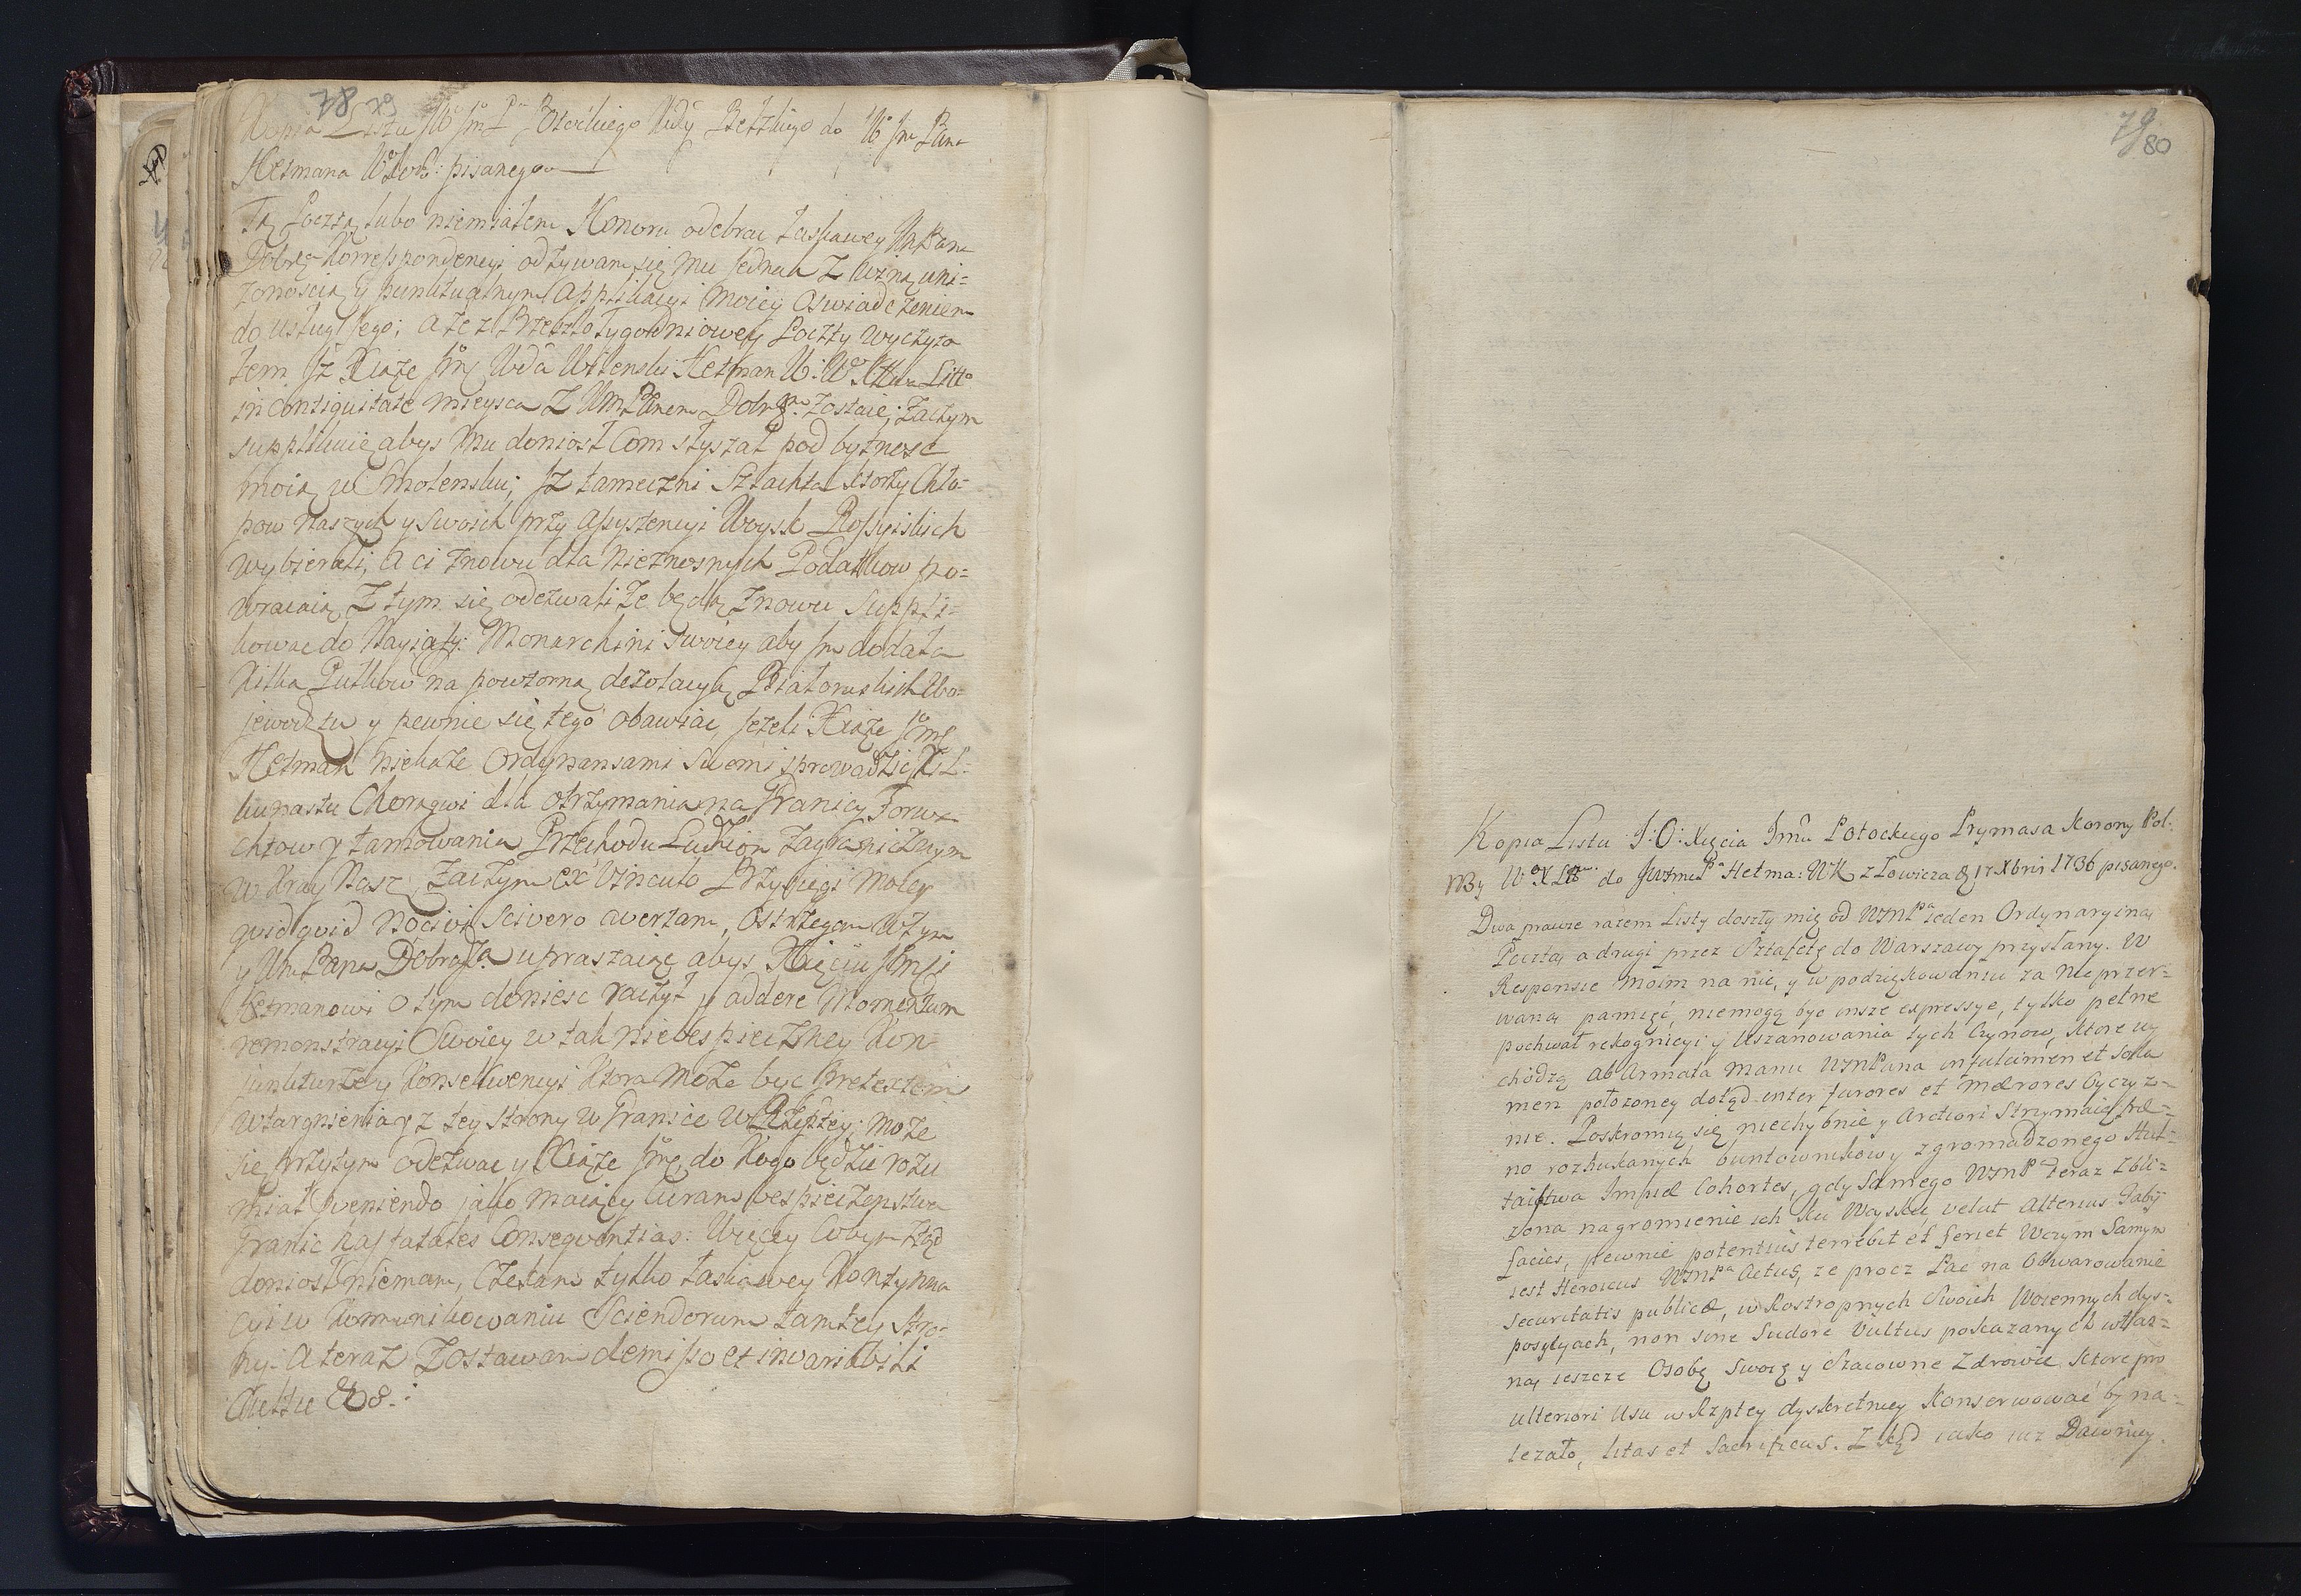 78 79
Kopia Listu W Jm P Potockiego Wdy Bełzkiego do W Jm Pana
Hetmana WXLo: pisanego
Tą Pocztą lubo niemiałem Honoru odebrac łaskawey Pana
Dobrey Korrespondencyi odzywam się mu jednak z wżną uni=
zonością y punktualnym applikacyi moiey oswiadczeniem
do usług Jego; a że z Przeszło tygodniowey Poczty wyczyta
łem Jż Xiąże Jmć Wda Wilenski Hetman W: WXttwa Litto
in contiguitate mieysca z Um Panem Dobrem zostaie; zaczym
supplikuię abys mu doniosł com słyszał pod bytnosc
moią w Smolensku; Jz tameczni Szlachta ktorzy Chło=
pow naszych y swoich przy assystencyi Woysk Rossyiskich
wybierali, a ci znowu dla nieznosnych Podatkow po=
wracaią, z tym się odezwali że będą znowu suppli=
kowac do Nayiasn: Monarchini swoiey aby Jm dodała
Kilka Pułkow na powtorną dezolacyą Białoruskich Wo=
jewodztw y pewnie się tego obawiac, jezeli Xiąże Jmć
Hetman niekaże Ordynansami swemi sprowadzic Kil=
kunastu Chorągwi dla otrzymania na Granicy Forwa
chtow y tamowania Przechodu Ludziom zagranicznym
w Kray Nasz, zaczym ex vinculo Przysięgi moiey
quid quid nocivi scivero avertam, ostrzegam w tym
y Um Pana Dobra upraszaiąc abys Xięciu Jmci
Hetmanowi o tym doniesc raczył y addere Momentum
remonstracyi Swoiey w tak niebespieczney Kon=
junkturze y konsekwencyi ktora może byc pretextem
wtargnienia y z tey strony w Granice Rzeptey; może
się przytym odezwac y Xiąże Jmć do Kogo będzie rozu
miał Weniendo jako maiący curam bespieczenstwa
Granic has fatales Consequentias: Więcey cobym ztąd
doniosł niemam, czekam tylko łaskawey Kontynua
cyi w kommunikowaniu Sciendorum tamtey stro=
ny: A teraz zostawam demisso et invariabili
Cultu &c :
79
80
Kopia Listu J: O: Xięcia Jmci Potockiego Prymasa Korony Pol:
y W X Litt do JWJm Pa Hetma: WK z Łowicza d 17 Xbris 1736 pisanego.
Dwa prawie razem Listy doszły mię od WJmPa ieden Ordynaryiną
Pocztą a drugi przez Sztafetę do Warszawy przysłany. W
Responsie moim na nie, y w podziękowaniu za nieprzer=
waną pamięć, niemogą byc insze expressye, tylko pełne
pochwał rekognicyi y Uszanowania tych Czynow, ktore wy
chodzą ab Armata Manu WJmPana in fulcimen et sola
men położoney dotąd inter furores et mærores Oyczyz=
nie. Poskromią się niechybnie y Arctiori Strzymaią fræ=
no rozhukanych buntownikow y zgromadzonego Hul=
taystwa Impiæ Cohortes, gdy samego WJmPa teraz zbli=
żona na gromienie ich ku Woysku, velut alterius Faby
facies, pewnie potentius terrebit et feriet. W czym samym
iest Heroicus WJmPa Actus, ze procz Pac na Obwarowanie
securitatis publicæ, w Rostropnych swoich Woiennych dys=
pozycyach, non sine Sudore Vultus pokazanych własz=
ną ieszcze Osobę Swoię y Szacowne Zdrowie, ktore pro
ulteriori usu w Rzptey dyskretniey Konserwować by na=
lezało, litas et Sacrificas. Z kąd iako iuz Dawniey